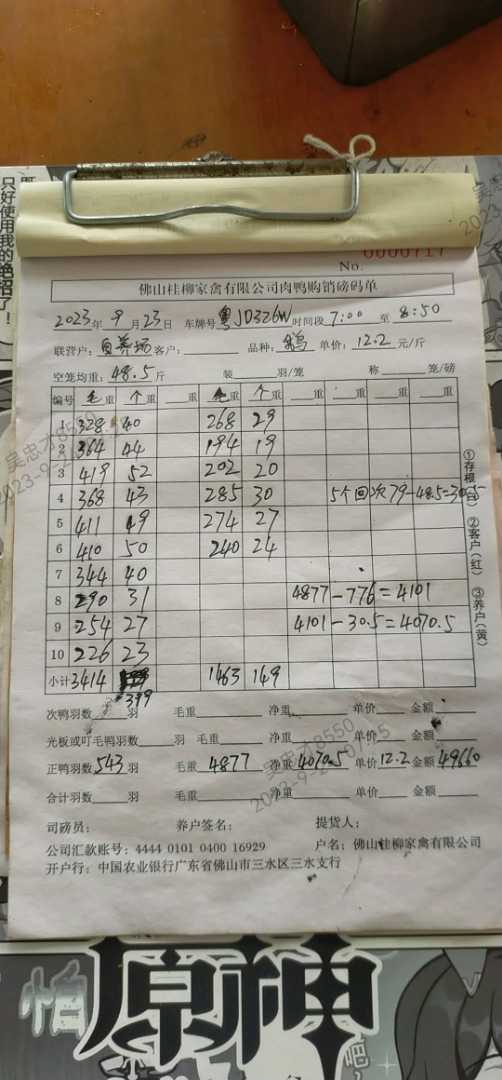 只好使用我的绝招了！
No. 0000717
佛山桂柳家禽有限公司肉鸭购销磅码单
2023年9月23日 车牌号粤JD326W时间段7:00至8:50
联营户：自养场 客户： 品种：鹅 单价：12.2元/斤
空笼均重：48.5斤 装 羽/笼 称 笼/磅
编号 毛重 个重 重 毛重 个重 重 重 重 重
1 328 40 268 29
2 364 44 194 19
3 419 52 202 20
4 368 43 285 30 5个回次79-48.5=30.5
5 411 49 274 27
6 410 50 240 24
7 344 40
8 290 31 4877-776=4101
9 254 27 4101-30.5=4070.5
10 226 23
小计 3414 399 1463 149
①存根(白) ②客户(红) ③养户(黄)
次鸭羽数 羽 毛重 净重 单价 金额
光板或叮毛鸭羽数 羽 毛重 净重 单价 金额
正鸭羽数543羽 毛重4877净重4070.5单价12.2金额49660
合计羽数 羽 毛重 净重 单价 金额
司磅员： 养户签名： 提货人：
公司汇款账号：4444 0101 0400 16929 户名：佛山桂柳家禽有限公司
开户行：中国农业银行广东省佛山市三水区三水支行
吴忠才8550
吴忠才8550
怕
原神
吧